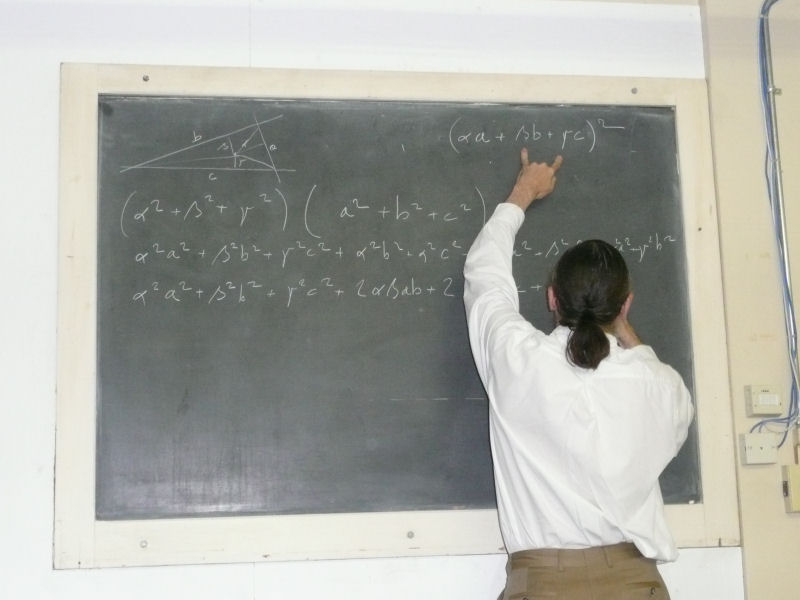 b β α a γ c
(αa + βb + γc)²
(α² + β² + γ²) ( a² + b² + c² )
α²a² + β²b² + γ²c² + α²b² + α²c² a² + β² a² + γ²b²
α²a² + β²b² + γ²c² + 2αβab + 2 c +